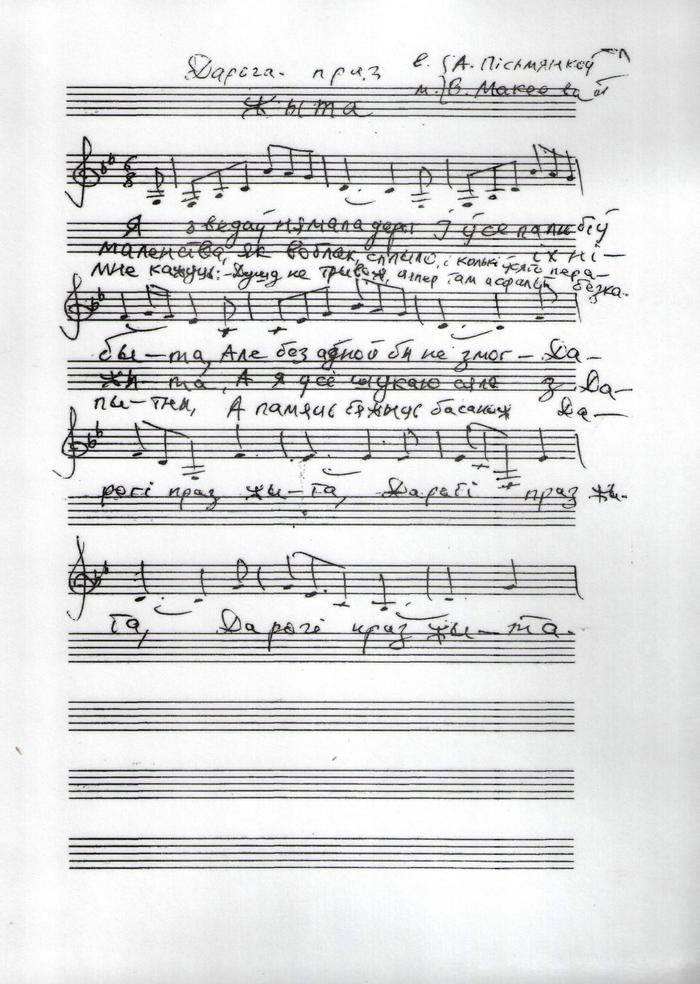 Дарога праз в. А. Пісьмянкоў
Жыта м. В. Макеевай
6
8
Я зведаў нямала дарог І ўсе палюбіў
маленства, як воблак, сплыло, і колькі іх ні-
Мне кажуць: - Душу не трывож, цяпер там асфальт бязка-
бы-та, Але без адной бы не змог - Да-
жы-та, А я ўсё шукаю сяло з Да-
пы-тны, А памяць сцяжыць басанож Да-
рогі праз жы-та, Дарогі праз жы-
та, Дарогі праз жы-та.